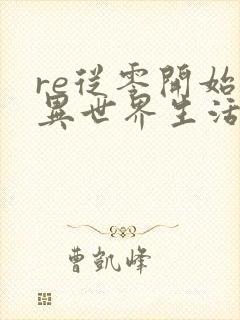 re從零開始
異世界生活
曹凱峰